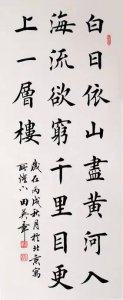 白日依山盡黃河入
海流欲窮千里目更
上一層樓
歲在丙戌秋月於北京寫
田英章